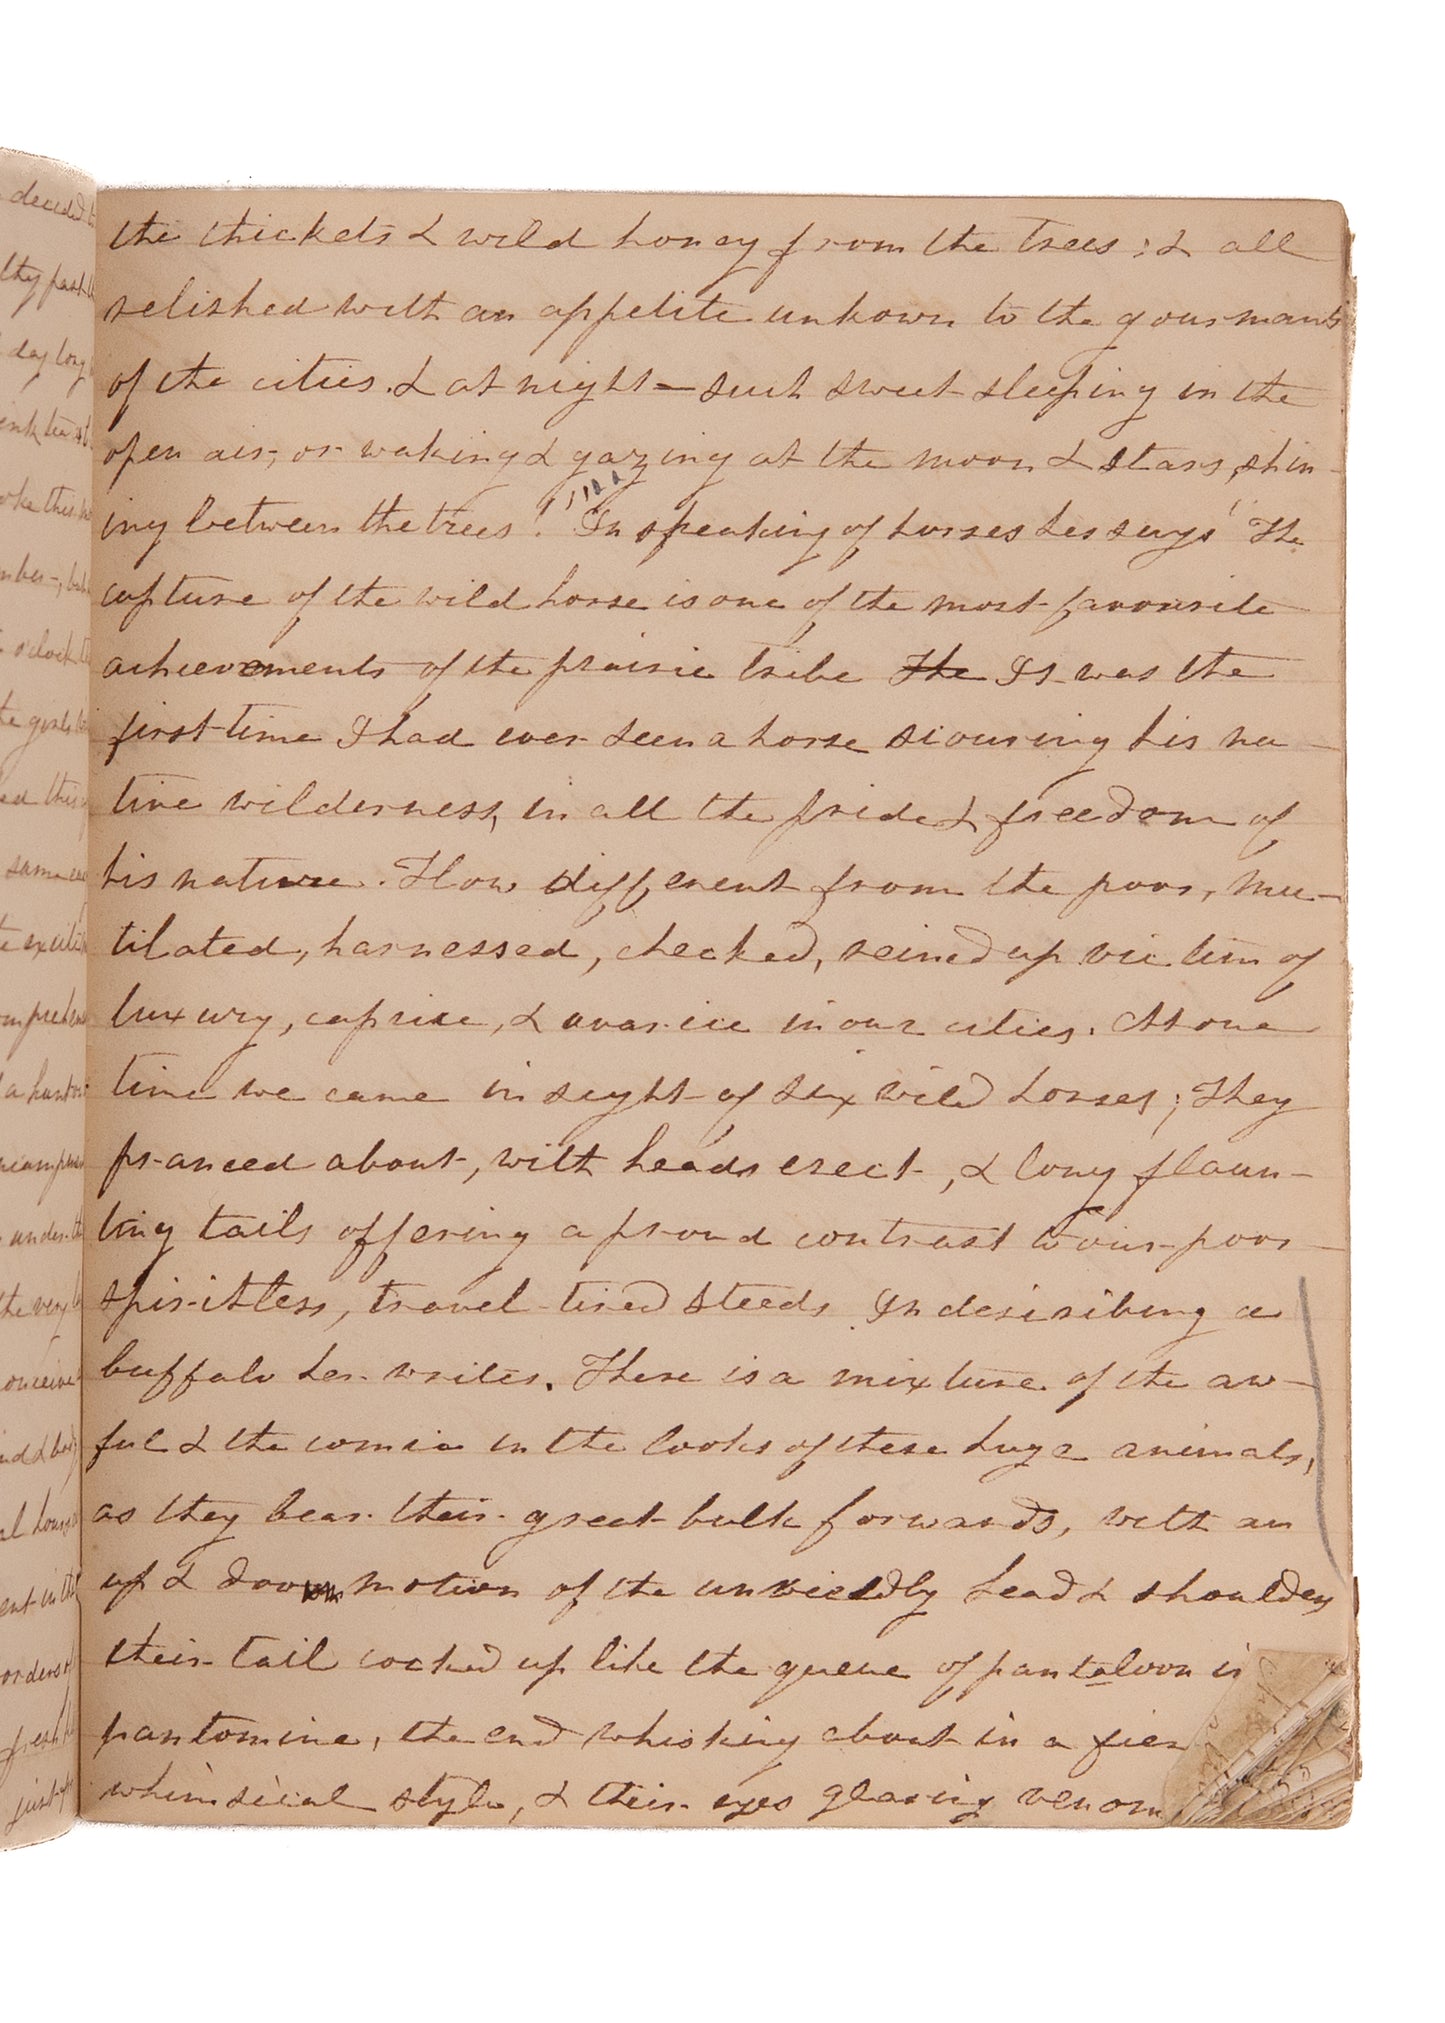 the thickets & wild honey from the trees; & all
relished with an appetite unkown to the gourmants
of the cities. & at night — such sweet sleeping in the
open air, or waking & gazing at the moon & stars, shin-
ing between the trees!" In speaking of horses he says "The
capture of the wild horse is one of the most favourite
achievements of the prairie tribe The It was the
first time I had ever seen a horse scouring his na-
tive wilderness, in all the pride & freedom of
his nature. How different from the poor, mu-
tilated, harnessed, checked, reined up victim of
luxury, caprice, & avarice in our cities. At one
time we came in sight of six wild horses; They
pranced about, with heads erect, & long flaun-
ting tails offering a proud contrast to our poor
spiritless, travel-tired steeds. In describing a
buffalo he writes. There is a mixture of the aw-
ful & the comic in the looks of these huge animals,
as they bear their great bulk forwards, with an
up & down motion of the unwieldly head & shoulders
their tail cocked up like the queue of pantaloon in
pantomine, the end whisking about in a
whimsical style, & their eyes glaring